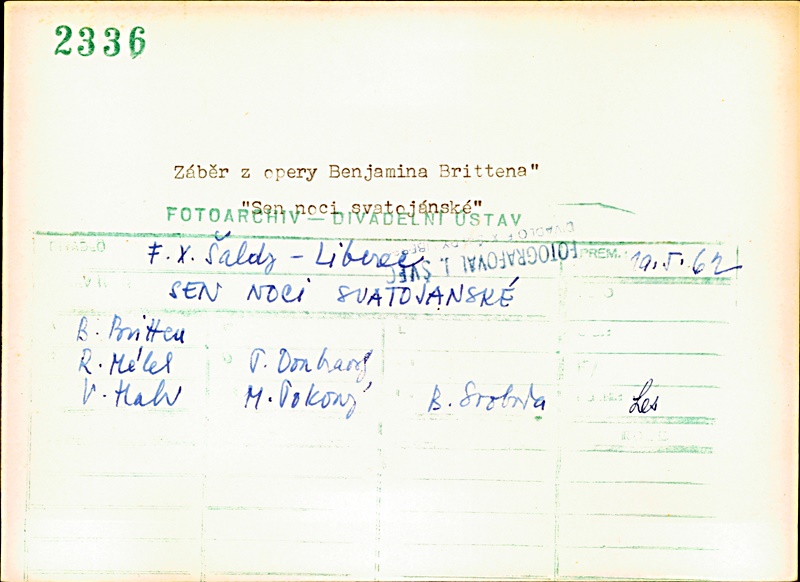 2336
Záběr z opery Benjamina Brittena"
"Sen noci svatojánské"
FOTOARCHIV — DIVADELNÍ ÚSTAV
DIVADLO F. X. Šaldy – Liberec PREM.: 19.5.62
FOTOGRAFOVAL J. ŠVEC
SEN NOCI SVATOJANSKÉ
B. Britten
R. Málek
V. M. Pokorný B. Svoboda Les